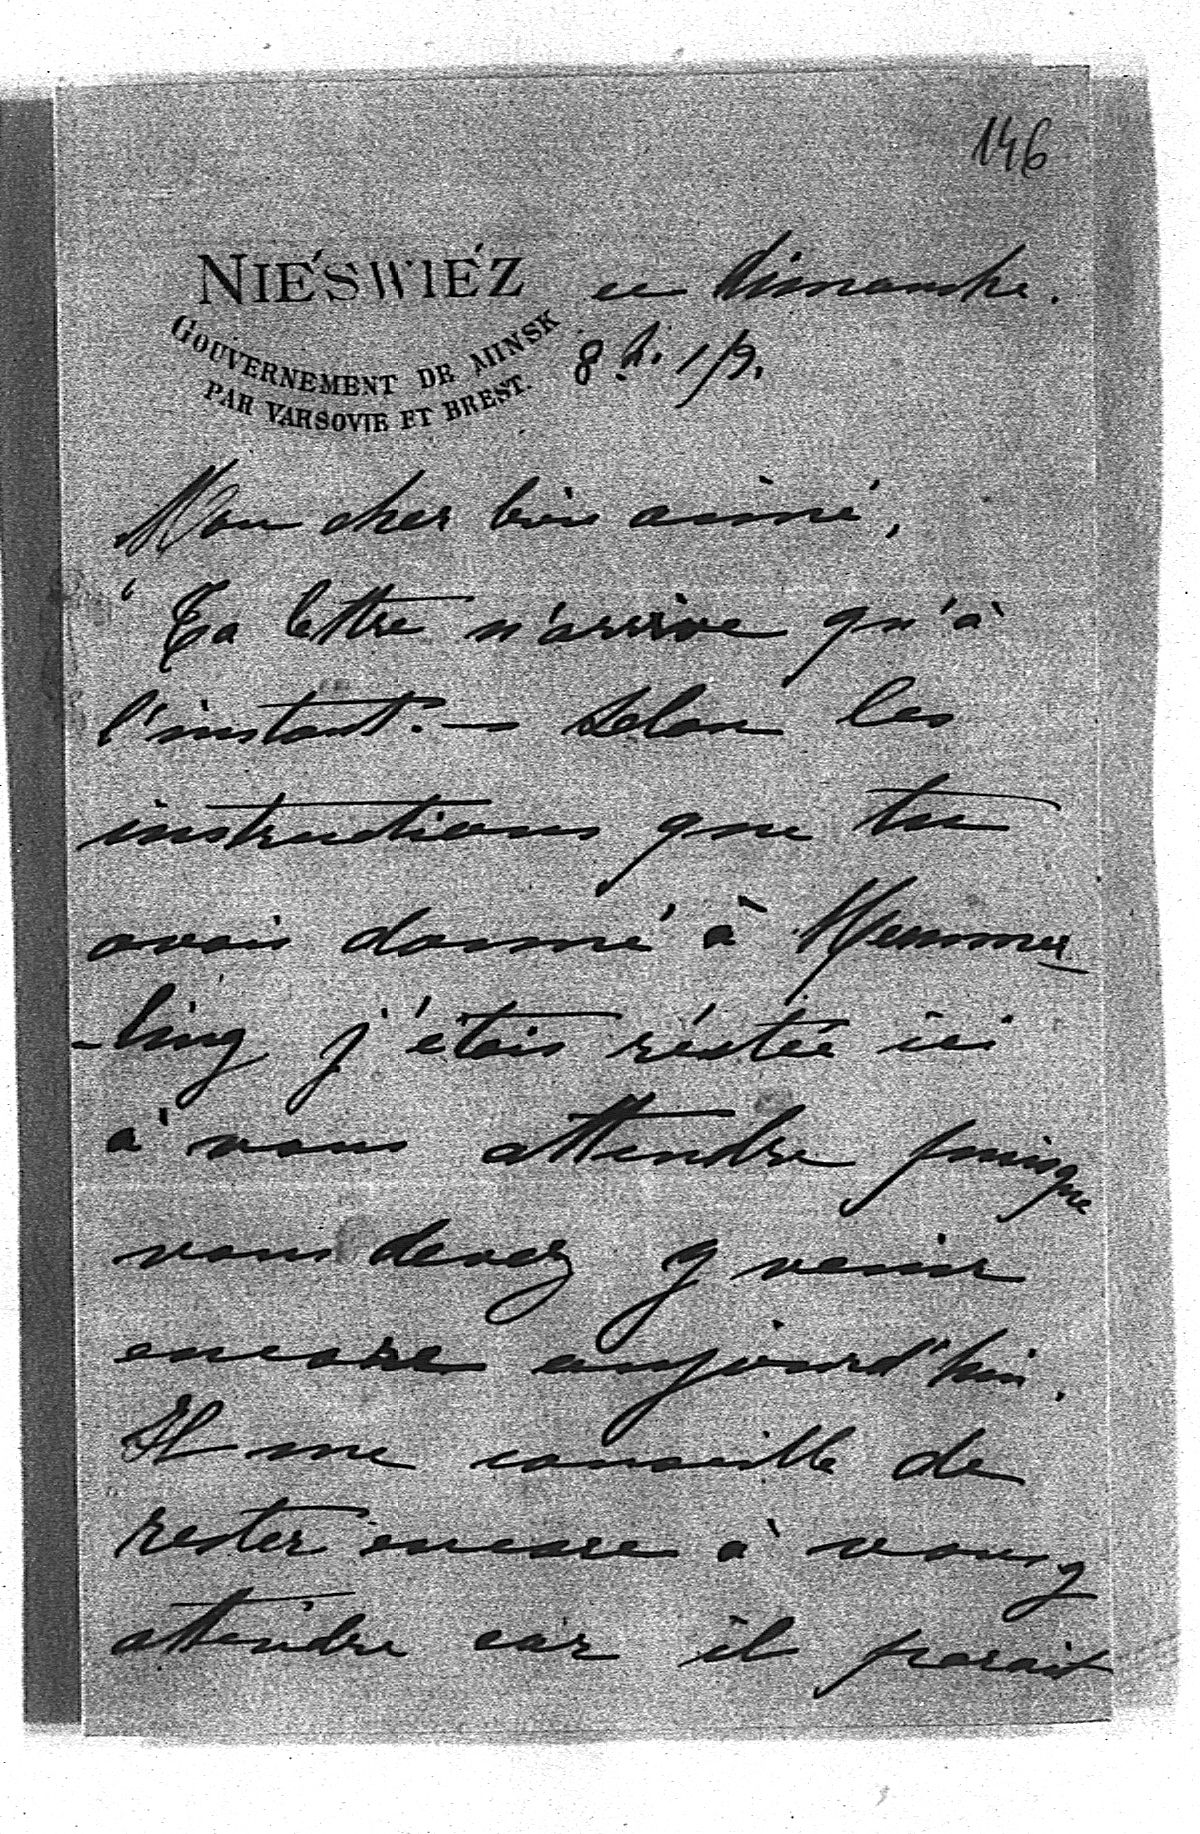 146
NIEŚWIÉZ
GOUVERNEMENT DE MINSK
PAR VARSOVIE ET BREST.
ce Dimanche.
8 h. 1/2.
Mon cher bien aimé,
Ta lettre n'arrive qu'à
l'instant. — Selon les
instructions que tu
avais donné à Hemmer
-ling j'étais réstée ici
à vous attendre puisque
vous devez y venir
encore aujourd'hui.
Il me conseille de
rester encore à vous y
attendre car il parait